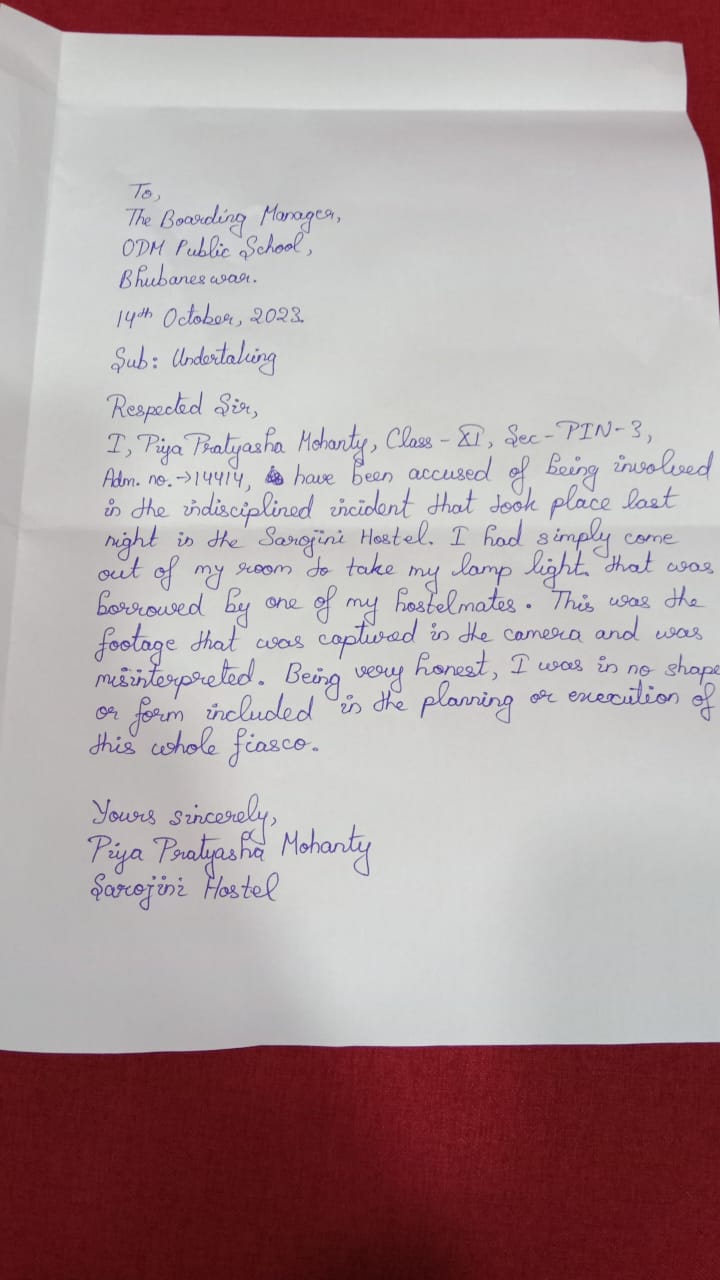 To,
The Boarding Manager,
ODM Public School,
Bhubaneswar.
14th October, 2023.
Sub: Undertaking
Respected Sir,
I, Piya Pratyasha Mohanty, Class - XI, Sec - PIN-3,
Adm. no. → 14414, have been accused of being involved
in the indisciplined incident that took place last
night in the Sarojini Hostel. I had simply come
out of my room to take my lamp light that was
borrowed by one of my hostelmates. This was the
footage that was captured in the camera and was
misinterpreted. Being very honest, I was in no shape
or form included in the planning or execution of
this whole fiasco.
Yours sincerely,
Piya Pratyasha Mohanty
Sarojini Hostel